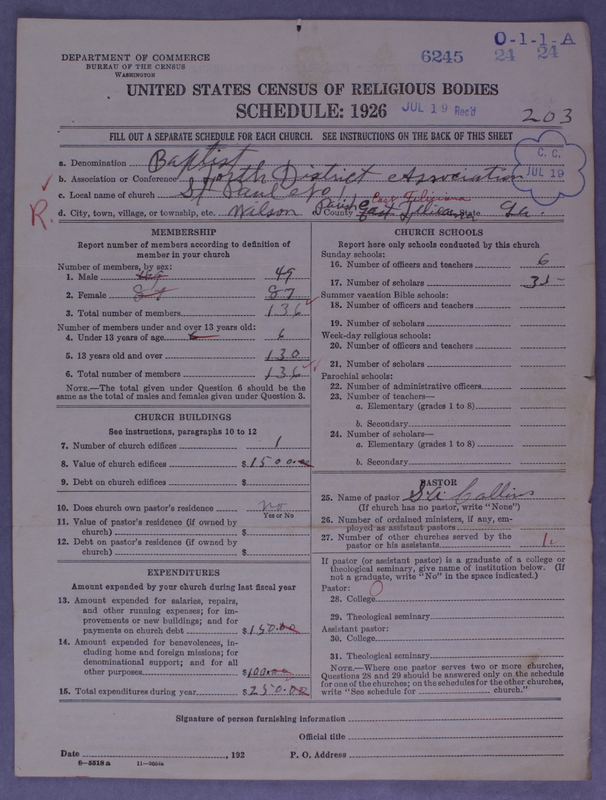 O-1-1-A
6245 24 24
DEPARTMENT OF COMMERCE
BUREAU OF THE CENSUS
WASHINGTON
UNITED STATES CENSUS OF RELIGIOUS BODIES
SCHEDULE: 1926 JUL 19 Rec'd
203
FILL OUT A SEPARATE SCHEDULE FOR EACH CHURCH. SEE INSTRUCTIONS ON THE BACK OF THIS SHEET
C. C.
JUL 19
a. Denomination Baptist
b. Association or Conference North District Association
c. Local name of church St Paul No 1
East Feliciana
R.
d. City, town, village, or township, etc. Wilson Parish County State La.
MEMBERSHIP
Report number of members according to definition of
member in your church
Number of members, by sex:
1. Male 49
2. Female 87 87
3. Total number of members 136
Number of members under and over 13 years old:
4. Under 13 years of age 6 6
5. 13 years old and over 130
6. Total number of members 136
NOTE.—The total given under Question 6 should be the
same as the total of males and females given under Question 3.
CHURCH BUILDINGS
See instructions, paragraphs 10 to 12
7. Number of church edifices 1
8. Value of church edifices $1500.00
9. Debt on church edifices $
10. Does church own pastor's residence no
Yes or No
11. Value of pastor's residence (if owned by
church) $
12. Debt on pastor's residence (if owned by
church) $
EXPENDITURES
Amount expended by your church during last fiscal year
13. Amount expended for salaries, repairs,
and other running expenses; for im-
provements or new buildings; and for
payments on church debt $150.00
14. Amount expended for benevolences, in-
cluding home and foreign missions; for
denominational support; and for all
other purposes $100.00
15. Total expenditures during year $250.00
CHURCH SCHOOLS
Report here only schools conducted by this church
Sunday schools:
16. Number of officers and teachers 6
17. Number of scholars
Summer vacation Bible schools:
18. Number of officers and teachers
19. Number of scholars
Week-day religious schools:
20. Number of officers and teachers
21. Number of scholars
Parochial schools:
22. Number of administrative officers
23. Number of teachers—
a. Elementary (grades 1 to 8)
b. Secondary
24. Number of scholars—
a. Elementary (grades 1 to 8)
b. Secondary
PASTOR
25. Name of pastor Collins
(If church has no pastor, write "None")
26. Number of ordained ministers, if any, em-
ployed as assistant pastors
27. Number of other churches served by the
pastor or his assistants
If pastor (or assistant pastor) is a graduate of a college or
theological seminary, give name of institution below. (If
not a graduate, write "No" in the space indicated.)
Pastor:
28. College
29. Theological seminary
Assistant pastor:
30. College
31. Theological seminary
NOTE.—Where one pastor serves two or more churches,
Questions 28 and 29 should be answered only on the schedule
for one of the churches; on the schedules for the other churches,
write "See schedule for church."
Signature of person furnishing information
Official title
Date , 192 P. O. Address
6—5518a 11—9864a